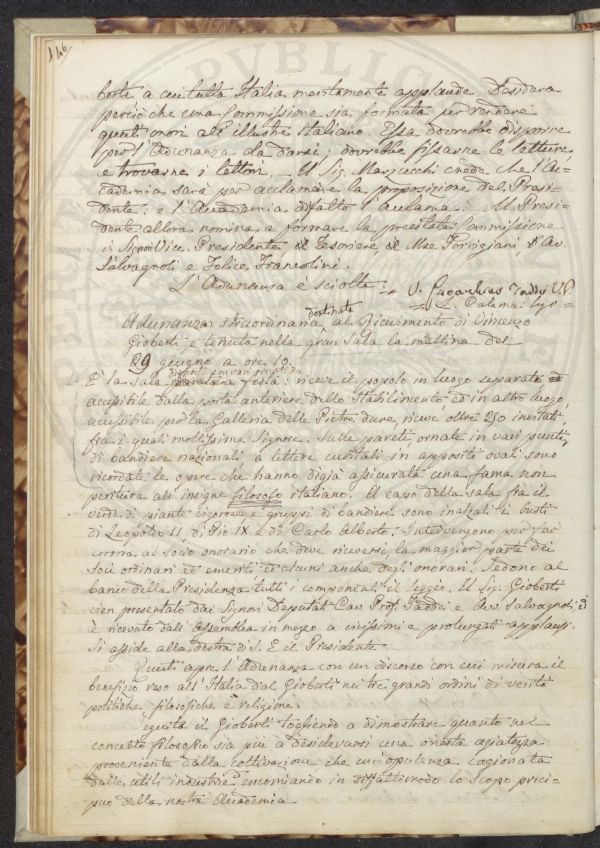 146
berti a cui tutta Italia meritamente applaude. Desidera
perciò che una Commissione sia formata per rendere
questi onori all'illustre italiano. Essa dovrebbe disporre
per l'Adunanza da darsi; dovrebbe fissarne le letture
e trovarne i lettori. Il Sig. crede che l'Ac-
cademia sarà per acclamare la proposizione del Presi-
dente: e l'Accademia difatto l'acclama: Il Presi-
dente allora nomina a formare la precitata Commissione
i Signori Vice Presidente Tesoriere Mse Torrigiani Av.
Salvagnoli e Felice Francolini.
L'Adunanza è sciolta: V. Taddei VP.
L. Calamai
Adunanza straordinaria destinata al Ricevimento di Vincenzo
Gioberti e tenuta nella gran Sala la mattina del
29 giugno a ore 10.
È la sala a festa: riceve il popolo in luogo separato
accessibile dalla porta anteriore dello Stabilimento ed in altro luogo,
accessibile per la Galleria delle Pietre dure, riceve oltre 250 invitati,
fra i quali moltissime Signore. Sulle pareti ornate in vari punti
di bandiere nazionali a lettere cubitali in appositi ovali sono
ricordate le opere che hanno digià assicurata una fama non
peritura all'insigne filosofo italiano. A capo della sala fra il
verde di piante vigorose e gruppi di bandiere sono inalzati i busti
di Leopoldo II, di Pio IX e di Carlo Alberto; Intervengono per far
corona al socio onorario che deve riceversi la maggior parte dei
soci ordinari ed emeriti ed alcuni anche degli onorari. Siedono al
banco della Presidenza tutti i componenti il seggio. Il Sig. Gioberti
vien presentato dai Signori Deputati Cav. Prof. Taddei e Avv. Salvagnoli, ed
è ricevuto dall'assemblea in mezzo a vivissimi e prolungati applausi.
Si asside alla destra di S. E. il Presidente.
Questi apre l'Adunanza con un discorso con cui misura il
benefizio reso all'Italia dal Gioberti nei tre grandi ordini di verità
politiche, filosofiche e religiose.
Seguita il Gioberti togliendo a dimostrare quanto nel
concetto filosofico sia più a desiderarsi una onesta agiatezza
proveniente dalla coltivazione che un'opulenza cagionata
dalle utili industrie encomiando in siffatto modo lo scopo preci-
puo della nostra Accademia